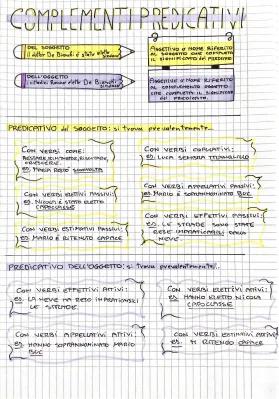 COMPLEMENTI PREDICATIVI
DEL SOGGETTO
il dottor De Bianchi è stato eletto sindaco
AGGETTIVO O NOME RIFERITO
AL SOGGETTO CHE COMPLETA
IL SIGNIFICATO DEL PREDICATO
DELL'OGGETTO
De Bianchi sindaco
AGGETTIVO O NOME RIFERITO
AL COMPLEMENTO OGGETTO
CHE COMPLETA IL SIGNIFICATO
DEL PREDICATO.
PREDICATIVO del SOGGETTO: si trova prevalentemente...
CON VERBI COME:
RESTARE, RIMANERE, RISULTARE,
es. MARIA RESTÒ SCONVOLTA
CON VERBI COPULATIVI:
es. LUCA SEMBRA TRANQUILLO
CON VERBI ELETTIVI PASSIVI:
es. NICOLA È STATO ELETTO
CAPOCLASSE
CON VERBI APPELLATIVI PASSIVI:
es. MARIO È SOPRANNOMINATO
CON VERBI ESTIMATIVI PASSIVI
es. MARIO È RITENUTO CAPACE
CON VERBI EFFETTIVI PASSIVI:
es. LE STRADE SONO STATE
RESE IMPRATICABILI DALLA
NEVE
PREDICATIVO DELL'OGGETTO: si trova prevalentemente...
CON VERBI EFFETTIVI ATTIVI:
es. LA NEVE HA RESO IMPRATICABILI
LE STRADE.
CON VERBI ELETTIVI ATTIVI:
es. HANNO ELETTO NICOLA
CAPOCLASSE
CON VERBI APPELLATIVI ATTIVI:
es. HANNO SOPRANNOMINATO MARIO
CON VERBI ESTIMATIVI ATTIVI
es. TI RITENGO CAPACE